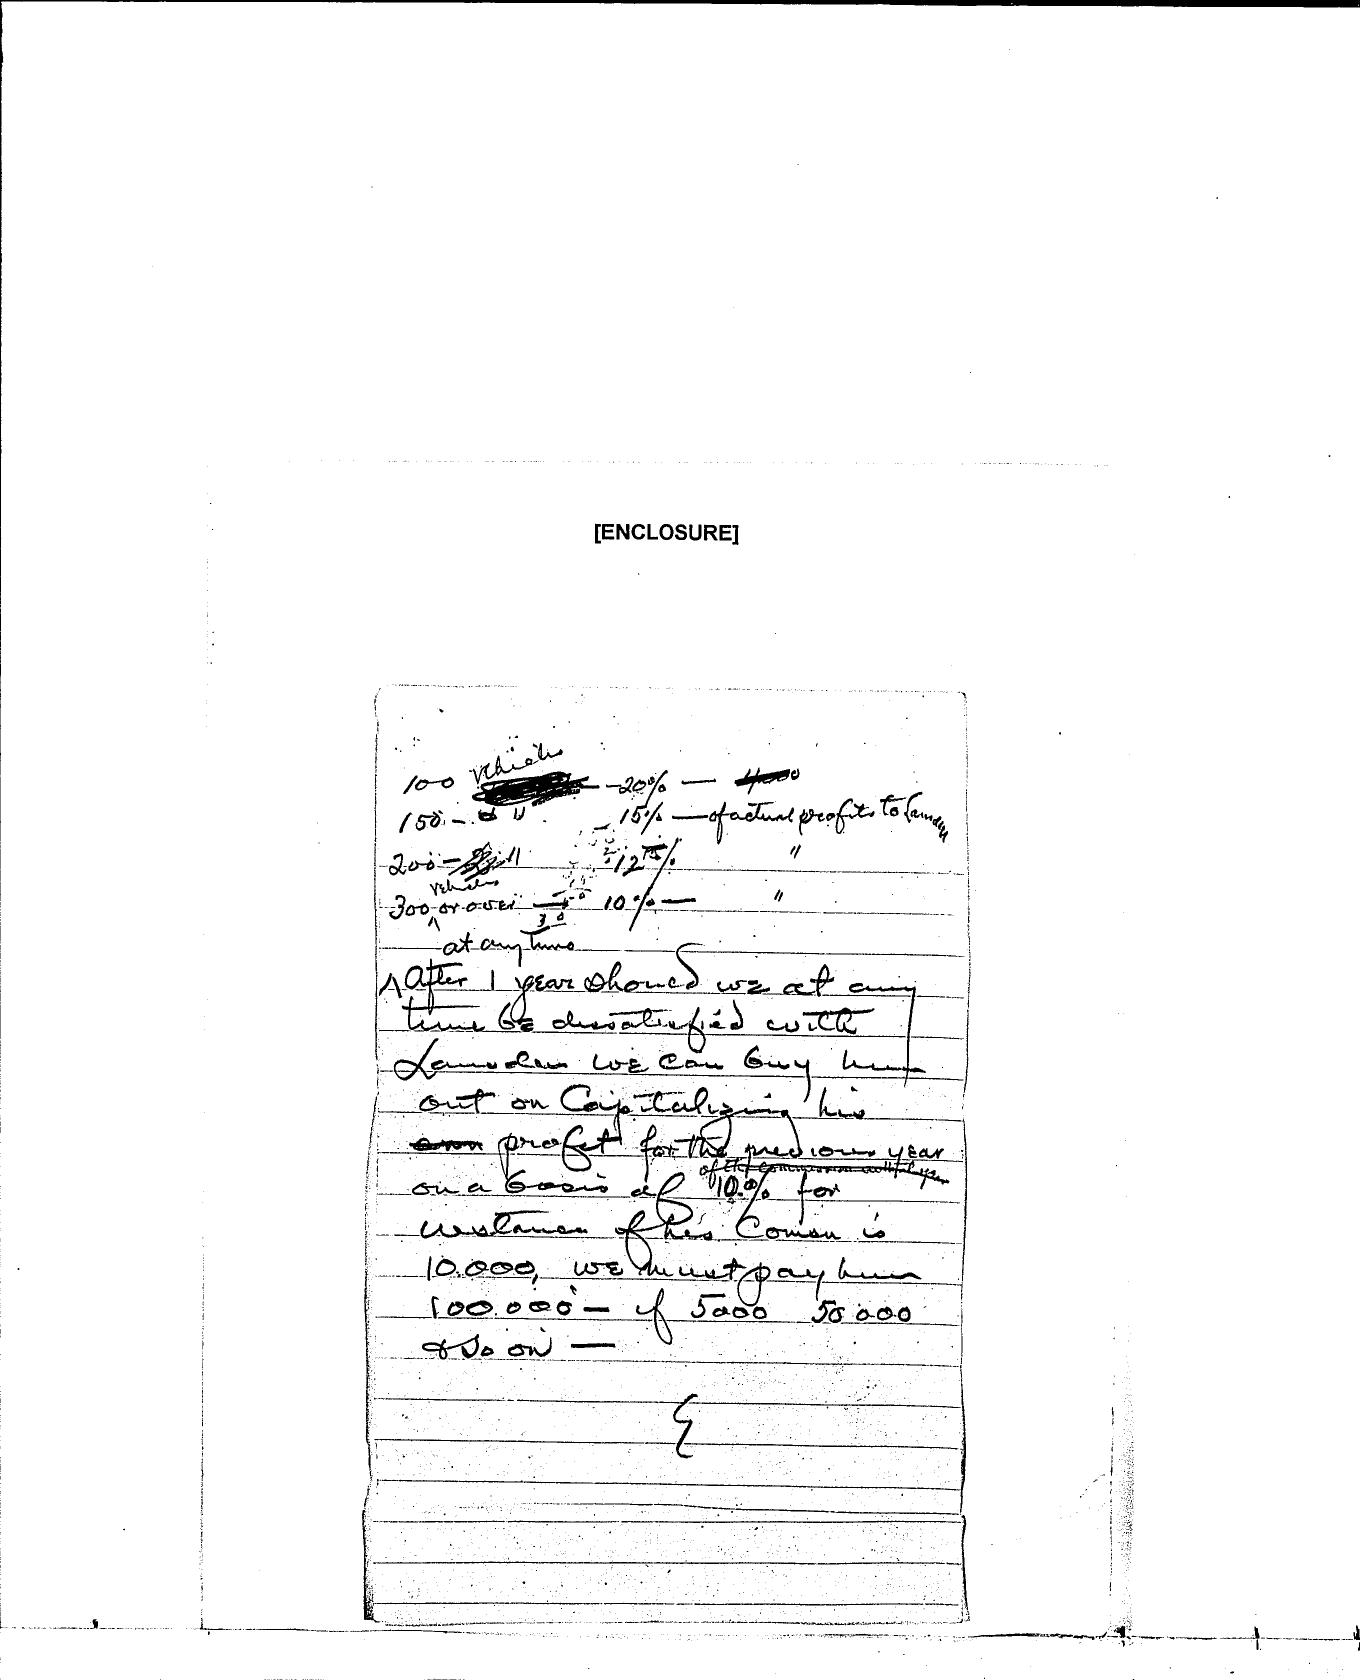 [ENCLOSURE]
vehicles
100 — 20% — 4000
150 — " " 15% — of actual profits to Lansden
200 — " 12 % "
vehicles
300 or over — 10% — "
at any time
After 1 year should we at any
time be dissatisfied with
Lansden we can buy him
out on Capitalizing his
profit for the previous year
of the commission
on a basis of 10.% for
instance if his Comsn is
10.000, we must pay him
100.000 — if 5000 50000
& so on —
E